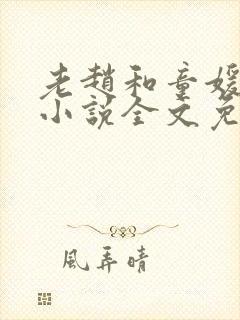 老趙和童媛
小說全文免
風弄晴